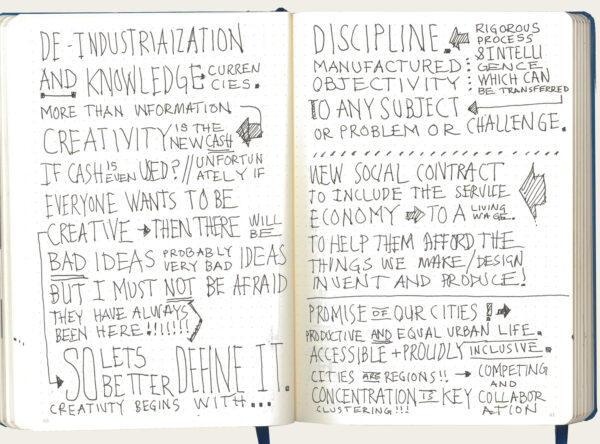 DE-INDUSTRIAIZATION
AND KNOWLEDGE CURREN
CIES.
MORE THAN INFORMATION
CREATIVITY IS THE
NEW CASH
IF CASH IS
EVEN USED? // UNFORTUN
ATELY IF
EVERYONE WANTS TO BE
CREATIVE → THEN THERE WILL
BE
BAD IDEAS PROBABLY
VERY BAD IDEAS
BUT I MUST NOT BE AFRAID
THEY HAVE ALWAYS
BEEN HERE!!!!!!!
SO LETS
BETTER DEFINE IT.
CREATIVITY BEGINS WITH...
DISCIPLINE. RIGOROUS
PROCESS
& INTELLI
MANUFACTURED : GENCE
OBJECTIVITY : WHICH CAN
BE TRANSFERRED
TO ANY SUBJECT
OR PROBLEM OR CHALLENGE.
NEW SOCIAL CONTRACT
TO INCLUDE THE SERVICE
ECONOMY ⇨ TO A LIVING
WAGE.
TO HELP THEM AFFORD THE
THINGS WE MAKE/DESIGN
INVENT AND PRODUCE!
PROMISE OF OUR CITIES ! →
PRODUCTIVE AND EQUAL URBAN LIFE.
ACCESSIBLE + PROUDLY INCLUSIVE.
CITIES ARE REGIONS!! → COMPETING
AND
CONCENTRATION IS KEY COLLABOR
ATION
CLUSTERING!!!